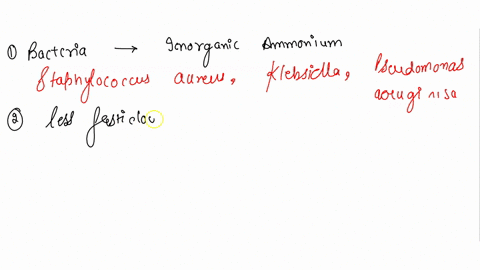 ① Bacteria → Inorganic Ammonium
Staphylococcus aureus, Klebsiella, Pseudomonas
aeruginisa
② less fastidou